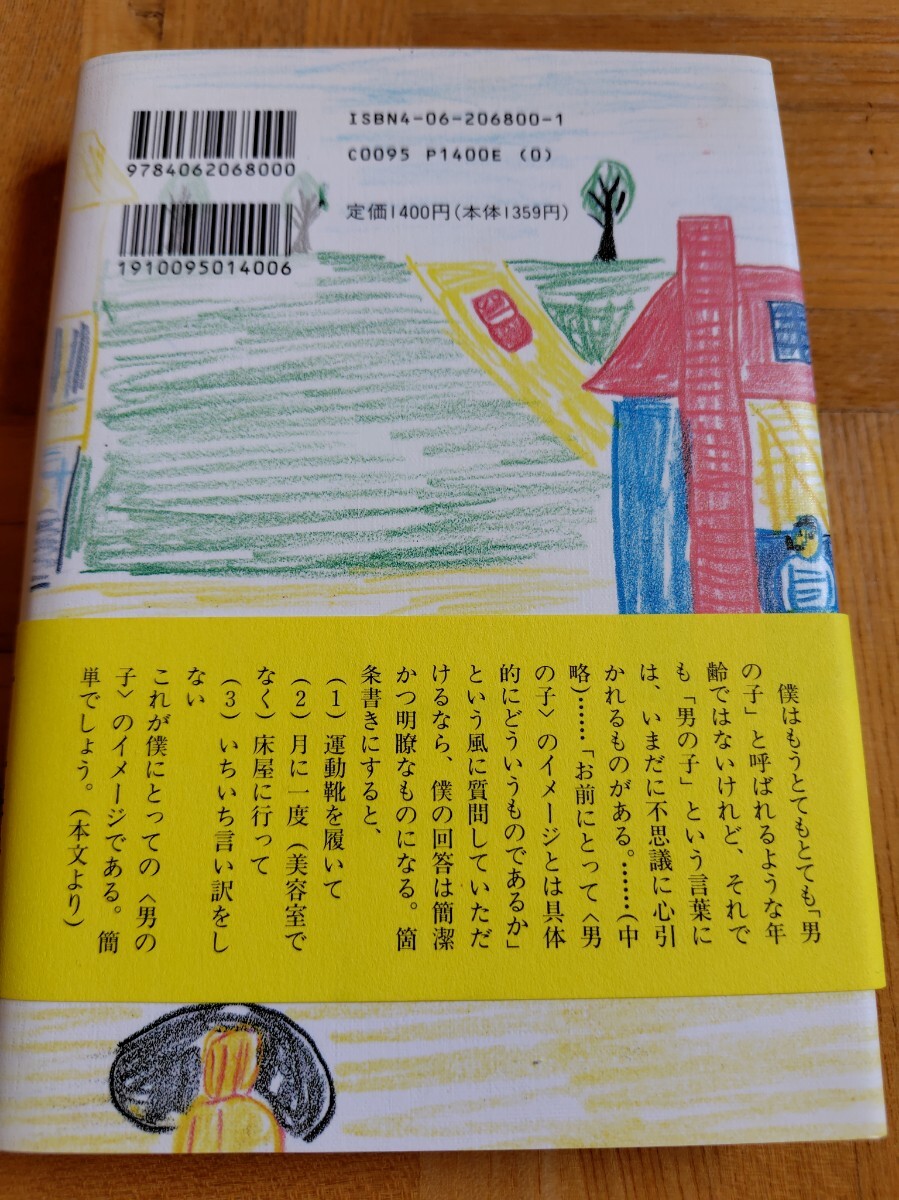 ISBN4-06-206800-1
C0095 P1400E (0)
9784062068000
定価1400円(本体1359円)
1910095014006
僕はもうとてもとても「男
の子」と呼ばれるような年
齢ではないけれど、それで
も「男の子」という言葉に
は、いまだに不思議に心引
かれるものがある。……(中
略)……「お前にとって〈男
の子〉のイメージとは具体
的にどういうものであるか」
という風に質問していただ
けるなら、僕の回答は簡潔
かつ明瞭なものになる。箇
条書きにすると、
(1)運動靴を履いて
(2)月に一度(美容室で
なく)床屋に行って
(3)いちいち言い訳をし
ない
これが僕にとっての〈男の
子〉のイメージである。簡
単でしょう。(本文より)